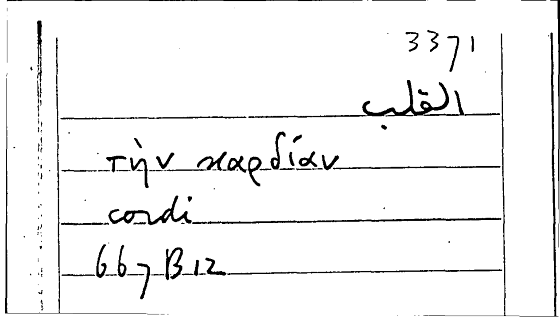 3371
القلب
τὴν καρδίαν
cordi
667 B 12